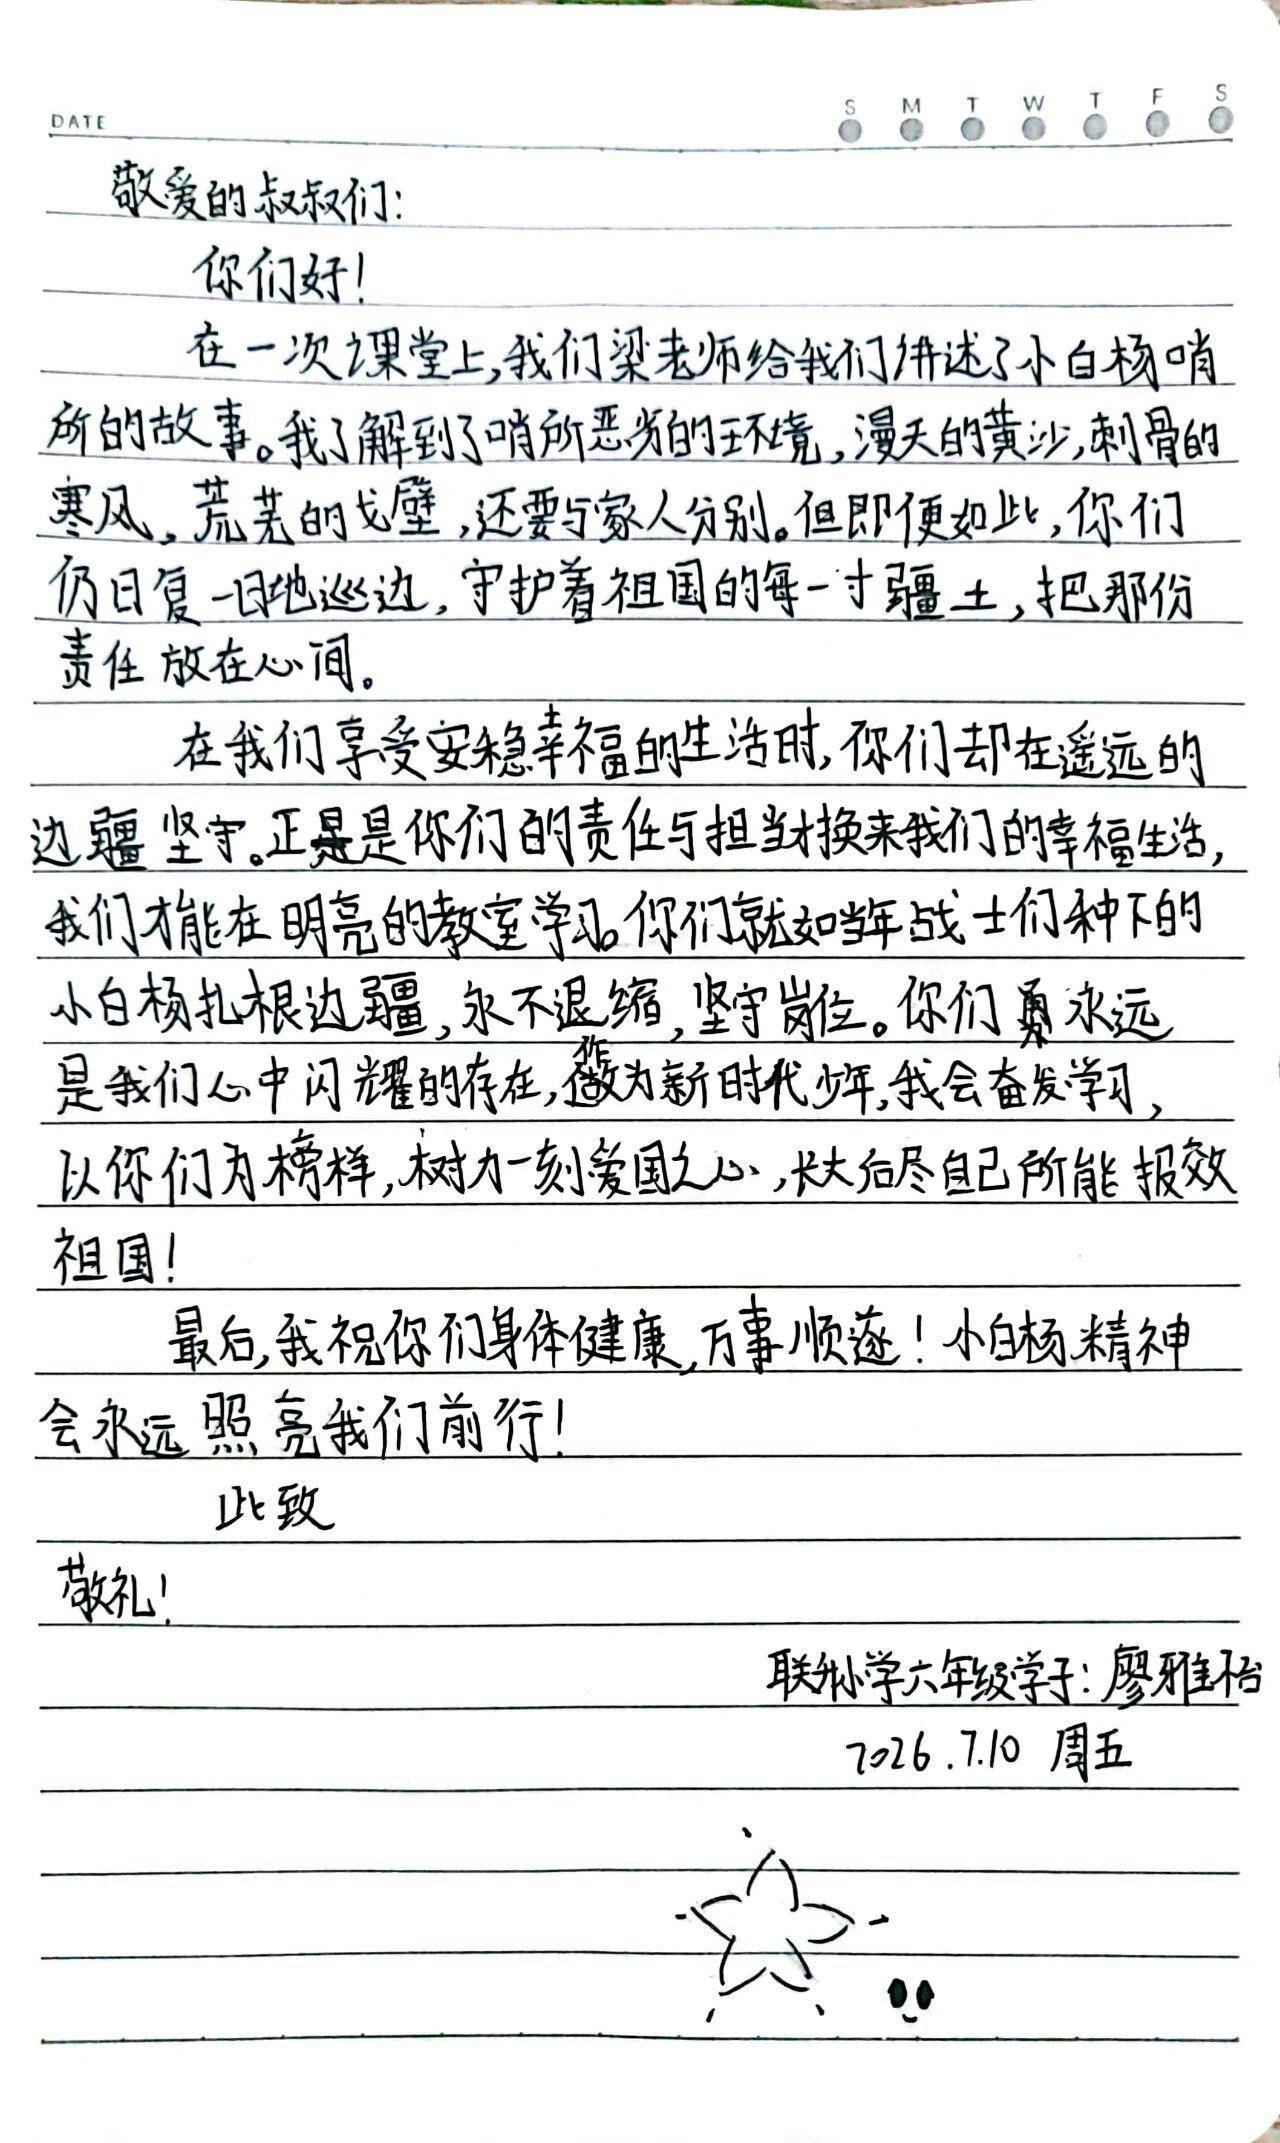 DATE
S M T W T F S
敬爱的叔叔们：
你们好！
在一次课堂上，我们梁老师给我们讲述了小白杨哨
所的故事。我了解到了哨所恶劣的环境，漫天的黄沙，刺骨的
寒风、荒芜的戈壁，还要与家人分别。但即便如此，你们
仍日复一日地巡边，守护着祖国的每一寸疆土，把那份
责任放在心间。
在我们享受安稳幸福的生活时，你们却在遥远的
边疆坚守。正是是你们的责任与担当才换来我们的幸福生活，
我们才能在明亮的教室学习。你们就如当年战士们种下的
小白杨扎根边疆，永不退缩，坚守岗位。你们永远
是我们心中闪耀的存在，作为新时代少年，我会奋发学习，
以你们为榜样，树力一刻爱国之心，长大后尽自己所能报效
祖国！
最后，我祝你们身体健康，万事顺遂！小白杨精神
会永远照亮我们前行！
此致
敬礼！
联升小学六年级学子：廖雅怡
2026.7.10 周五